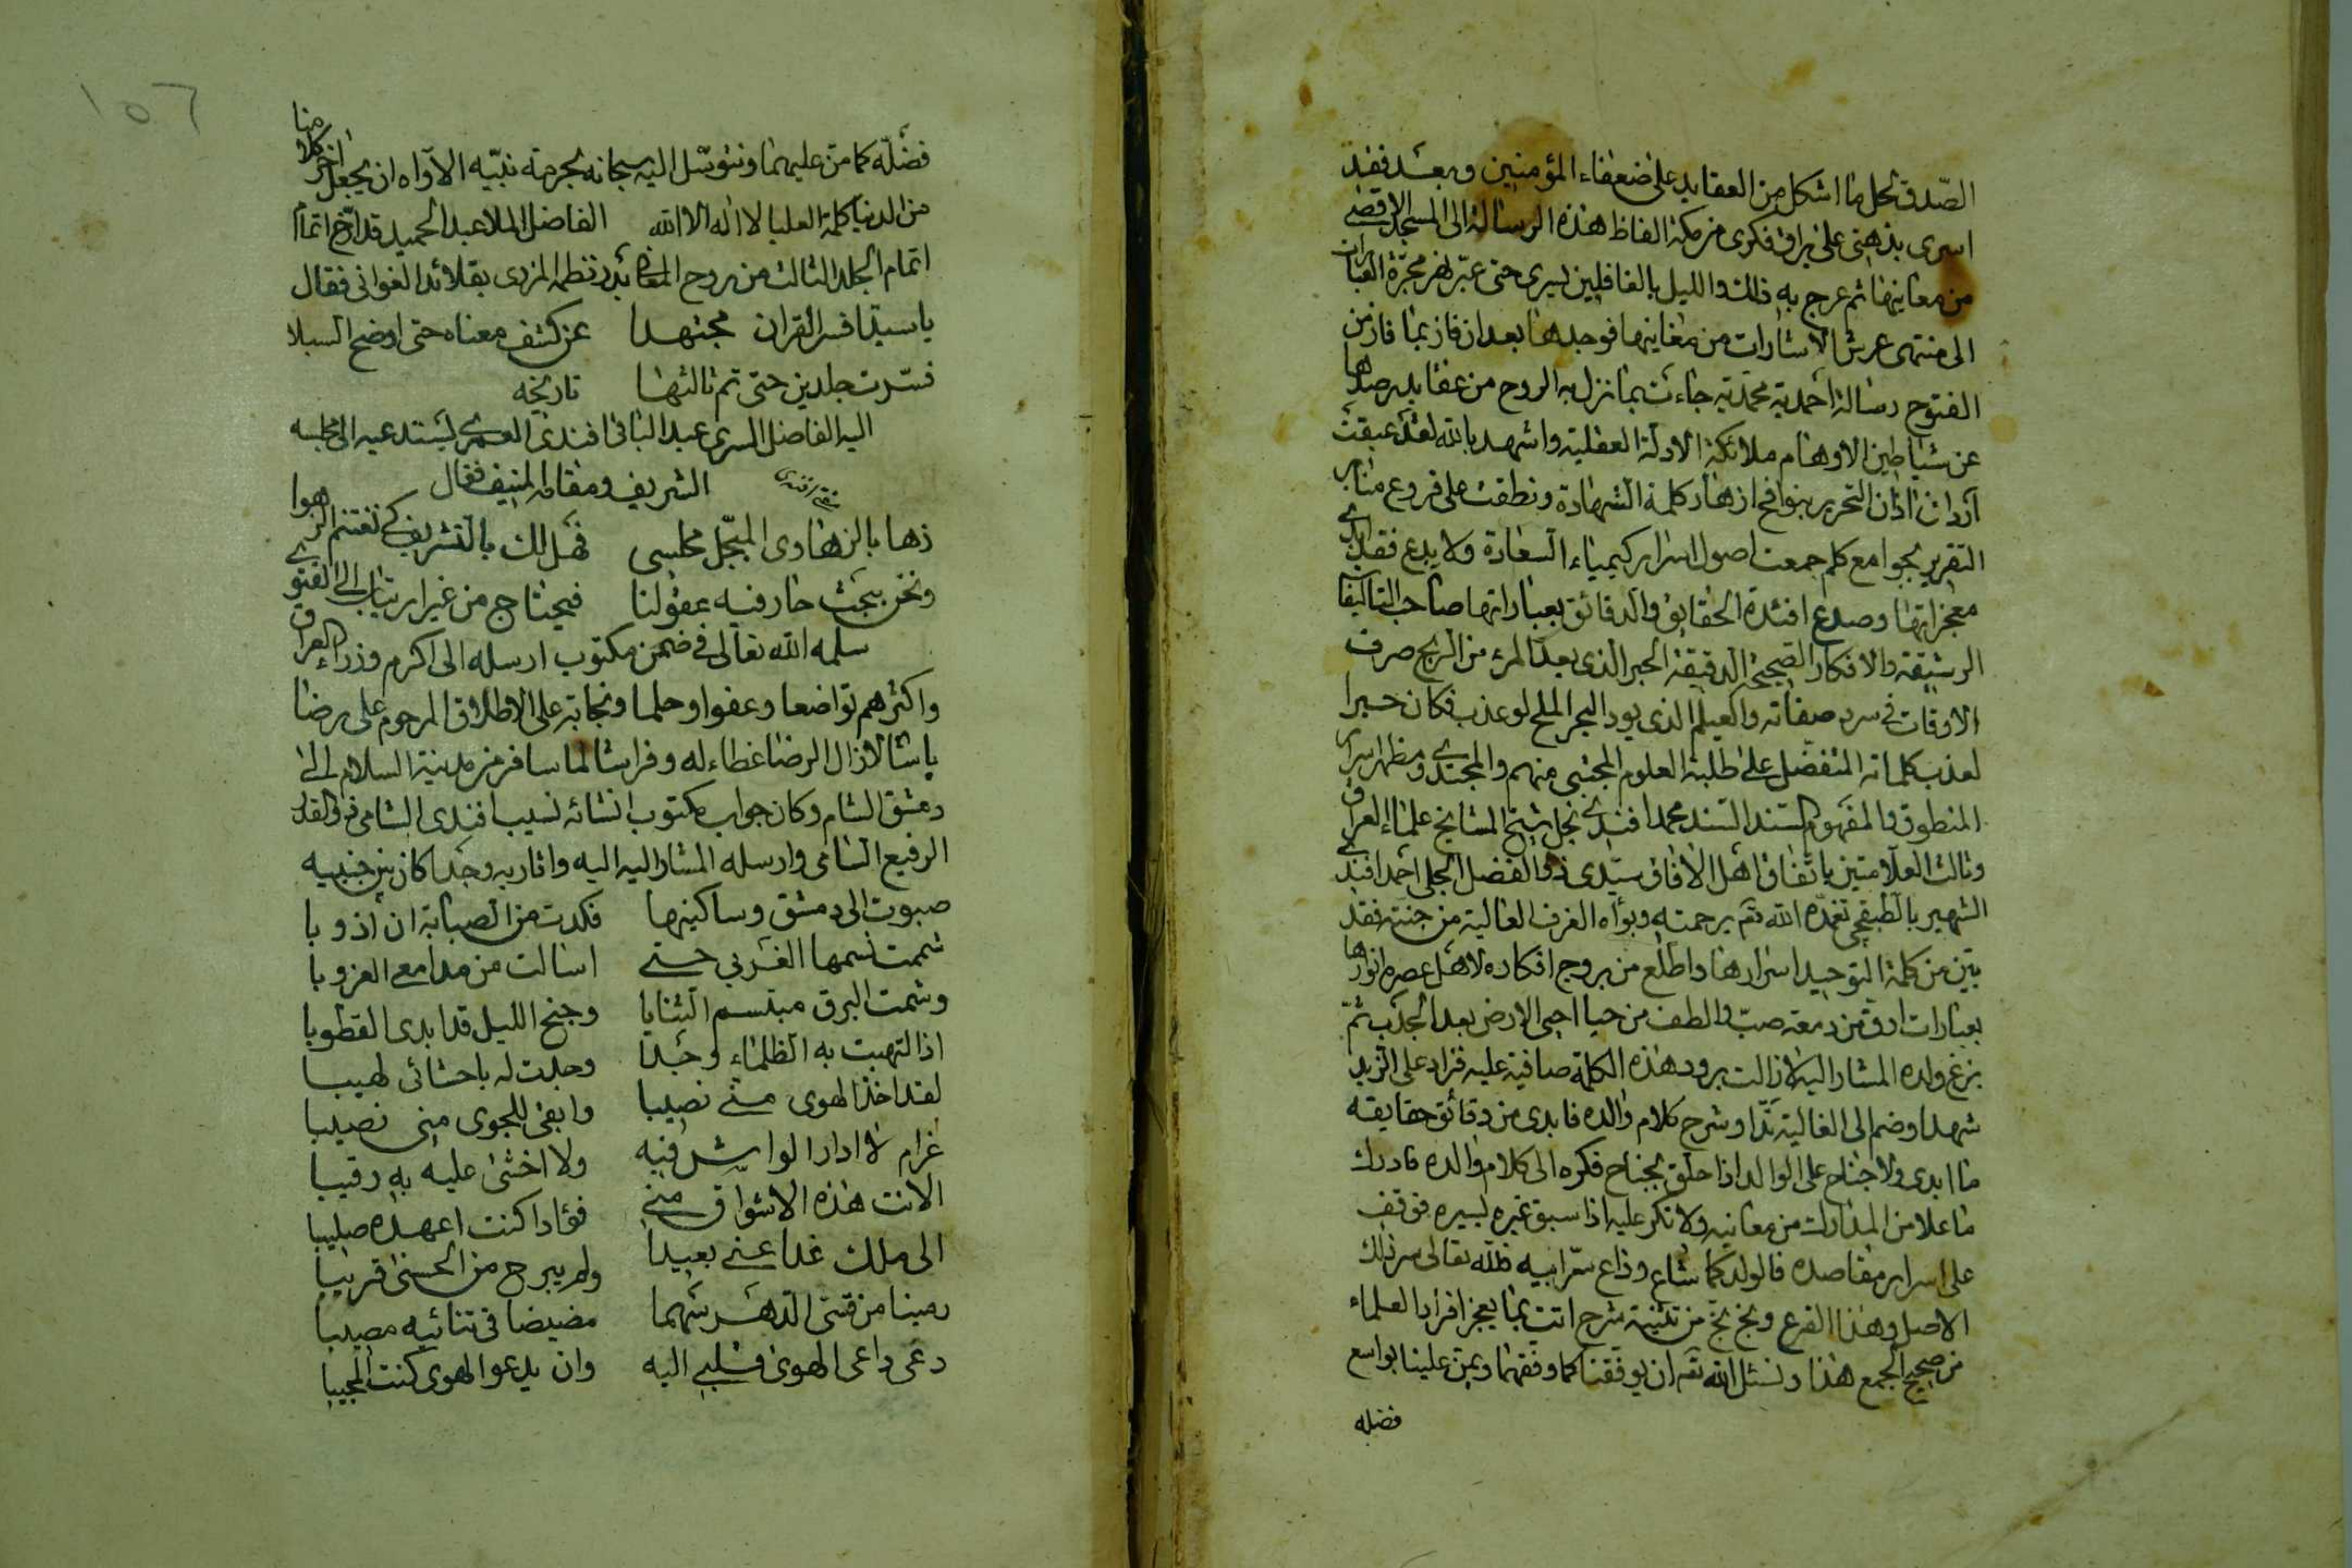 الصّدق لحل ما اشكل من العقايد على ضعفاء المؤمنين وبعد فقد
اسرى بذهنى على براق فكرى من مكة الفاظ هذه الرسالة الى المسجد الاقصى
من معاينها ثم عرج به ذلك والليل بالغافلين يسرى حتى عبّر نهر مجرّة العبارات
الى منتهى عرش الاشارات من مغاينها فوجدها بعد ان فاز بما فاز من
الفتوح رسالة احمدية محمّدية جاءت بما نزل به الروح من عقايد رصدها
عن شياطين الاوهام ملائكة الادلة العقلية واشهد بالله لقد عبقت
آردان اذان التحرير بنوافح ازهار كلمة الشهادة ونطقت على فروع منابر
التقرير بجوامع كلم جمعت اصول اسرار كيمياء السعادة ولا بدع فقد
معجزاتها وصدع افئدة الحقايق والدقائق بعباراتها صاحب التاليفات
الرشيقة والافكار الصحيحة الدقيقة الحبر الذى يعد المرء من الربح صرف
الاوقات فى سرد صفاته والعيلم الذى يود البحر الملح لو عذب فكان خبرا
لعذب كلماته المتفضّل على طلبة العلوم المجتبى منهم والمجتدى ومظهر اسرار
المنطوق والمفهوم السند السند محمد افندى نجل شيخ المشايخ علماء العراق
وثالث العلامتين باتفاق اهل الافاق سيّدى ذو الفضل الجلى احمد افندى
الشهير بالطبقچى تغمّده الله تع برحمته وبوأه الغرف العالية من جنته فقد
بيّن من كلمة التوحيد اسرارها واطلع من بروج افكاره لاهل عصره انوارها
بعبارات ارق من دمعة صبّ والطف من حيا احيى الارض بعد الجدب ثمّ
بزغ ولده المشار اليه لا زالت برود هذه الكلمة صافية عليه فزاد على الزبد
شهدا وضم الى الغالية ندّا وشرح كلام والده فابدى من دقائق حقايقه
ما ابدى ولا جناح على الوالد اذا حلق بجناح فكره الى كلام والده فادرك
ما علا من المدارك من معانيه ولا نكر عليه اذا سبق غيره بسيره فوقف
على اسرار مقاصده فالولد كما شاع وذاع سرّ ابيه فلله تعالى سر ذلك
الاصل وهذا الفرع وبخ بخ من تثنية شرح اتت بما يعجز افراد العلماء
من صحيح الجمع هذا ونسئل الله تع ان يوفقنا كما وفقهما ويمن علينا بواسع
فضله
فضله كما منّ عليهما ونتوسّل اليه سبحانه بحرمة نبيّه الاوّاه ان يجعل اخر كلامنا
من الدنيا كلمة العليا لا اله الا الله الفاضل الملا عبد الحميد قد ارّخ اتمام
اتمام الجلد الثالث من روح المعانى بدر نظمه المزرى بقلائد الغوانى فقال
يا سيدا فسر القران مجتهدا عن كشف معناه حتى اوضح السبلا
فسّرت جلدين حتى تم ثالثها تاريخه
اليه الفاضل السرى عبد الباقى افندى العمرى يستدعيه الى مجلسه
الشريف ومقامه المنيف فقال
ذها بالزهاوى المبجّل مجلسى فهل لك بالتشريف كى نغتنم الزهوا
ونحن ببحث حار فيه عقولنا فيحتاج من غير ارتياب الى الفتوى
سلمه الله تعالى فى ضمن مكتوب ارسله الى اكرم وزراء العراق
واكثرهم تواضعا وعفوا وحلما ونجابة على الاطلاق المرحوم على رضا
پاشا لا زال الرضا غطاء له وفراشا لما سافر من مدينة السلام الى
دمشق الشام وكان جواب مكتوب انشائه نسيب افندى الشامى ذو القدر
الرفيع السامى وارسله المشار اليه اليه واثار به وجدا كان بين جنبيه
صبوت الى دمشق وساكنيها فكدت من الصبابة ان اذوبا
شممت نسمها الغربي حتى اسالت من مدامعى الغروبا
وشمت البرق مبتسم الثنايا وجنح الليل قد ابدى القطوبا
اذا التهبت به الظلماء وجدا وجدت له باحشائى لهيبا
لقد اخذ الهوى منى نصيبا وابقى للجوى منى نصيبا
غرام لا ادار الواش فيه ولا اخشى عليه به رقيبا
الانت هذه الاشواق منى فؤادا كنت اعهده صليبا
الى ملك غدا عنى بعيدا ولم يبرح من الحسنى قريبا
رمينا من قسىّ الدهر سهما مضيضا فى تنائيه مصيبا
دعى داعى الهوى قلبى اليه وان يدعو الهوى كنت المجيبا
١٥٦